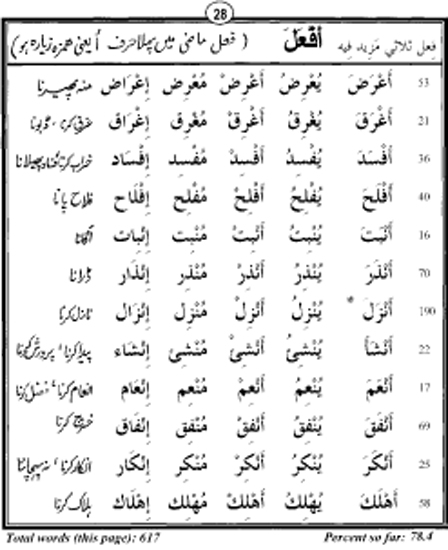 28
فعل ثلاثي مَزِيد فِيه أَفْعَلَ ( فعل ماضی میں پہلا حرف أ یعنی ہمزہ زیادہ ہو )
53 أَعْرَضَ يُعْرِضُ أَعْرِضْ مُعْرِض إِعْرَاض منہ پھیرنا
21 أَغْرَقَ يُغْرِقُ أَغْرِقْ مُغْرِق إِغْرَاق غرق کرنا، ڈبونا
36 أَفْسَدَ يُفْسِدُ أَفْسِدْ مُفْسِد إِفْسَاد خراب کرنا، فساد پھیلانا
40 أَفْلَحَ يُفْلِحُ أَفْلِحْ مُفْلِح إِفْلَاح فلاح پانا
16 أَنْبَتَ يُنْبِتُ أَنْبِتْ مُنْبِت إِنْبَات اگانا
70 أَنْذَرَ يُنْذِرُ أَنْذِرْ مُنْذِر إِنْذَار ڈرانا
190 أَنْزَلَ * يُنْزِلُ أَنْزِلْ مُنْزِل إِنْزَال نازل کرنا
22 أَنْشَأَ يُنْشِئُ أَنْشِئْ مُنْشِئ إِنْشَاء پیدا کرنا، پرورش کرنا
17 أَنْعَمَ يُنْعِمُ أَنْعِمْ مُنْعِم إِنْعَام انعام کرنا، فضل کرنا
69 أَنْفَقَ يُنْفِقُ أَنْفِقْ مُنْفِق إِنْفَاق خرچ کرنا
25 أَنْكَرَ يُنْكِرُ أَنْكِرْ مُنْكِر إِنْكَار انکار کرنا، نہ پہچاننا
58 أَهْلَكَ يُهْلِكُ أَهْلِكْ مُهْلِك إِهْلَاك ہلاک کرنا
Total words (this page): 617 Percent so far: 78.4